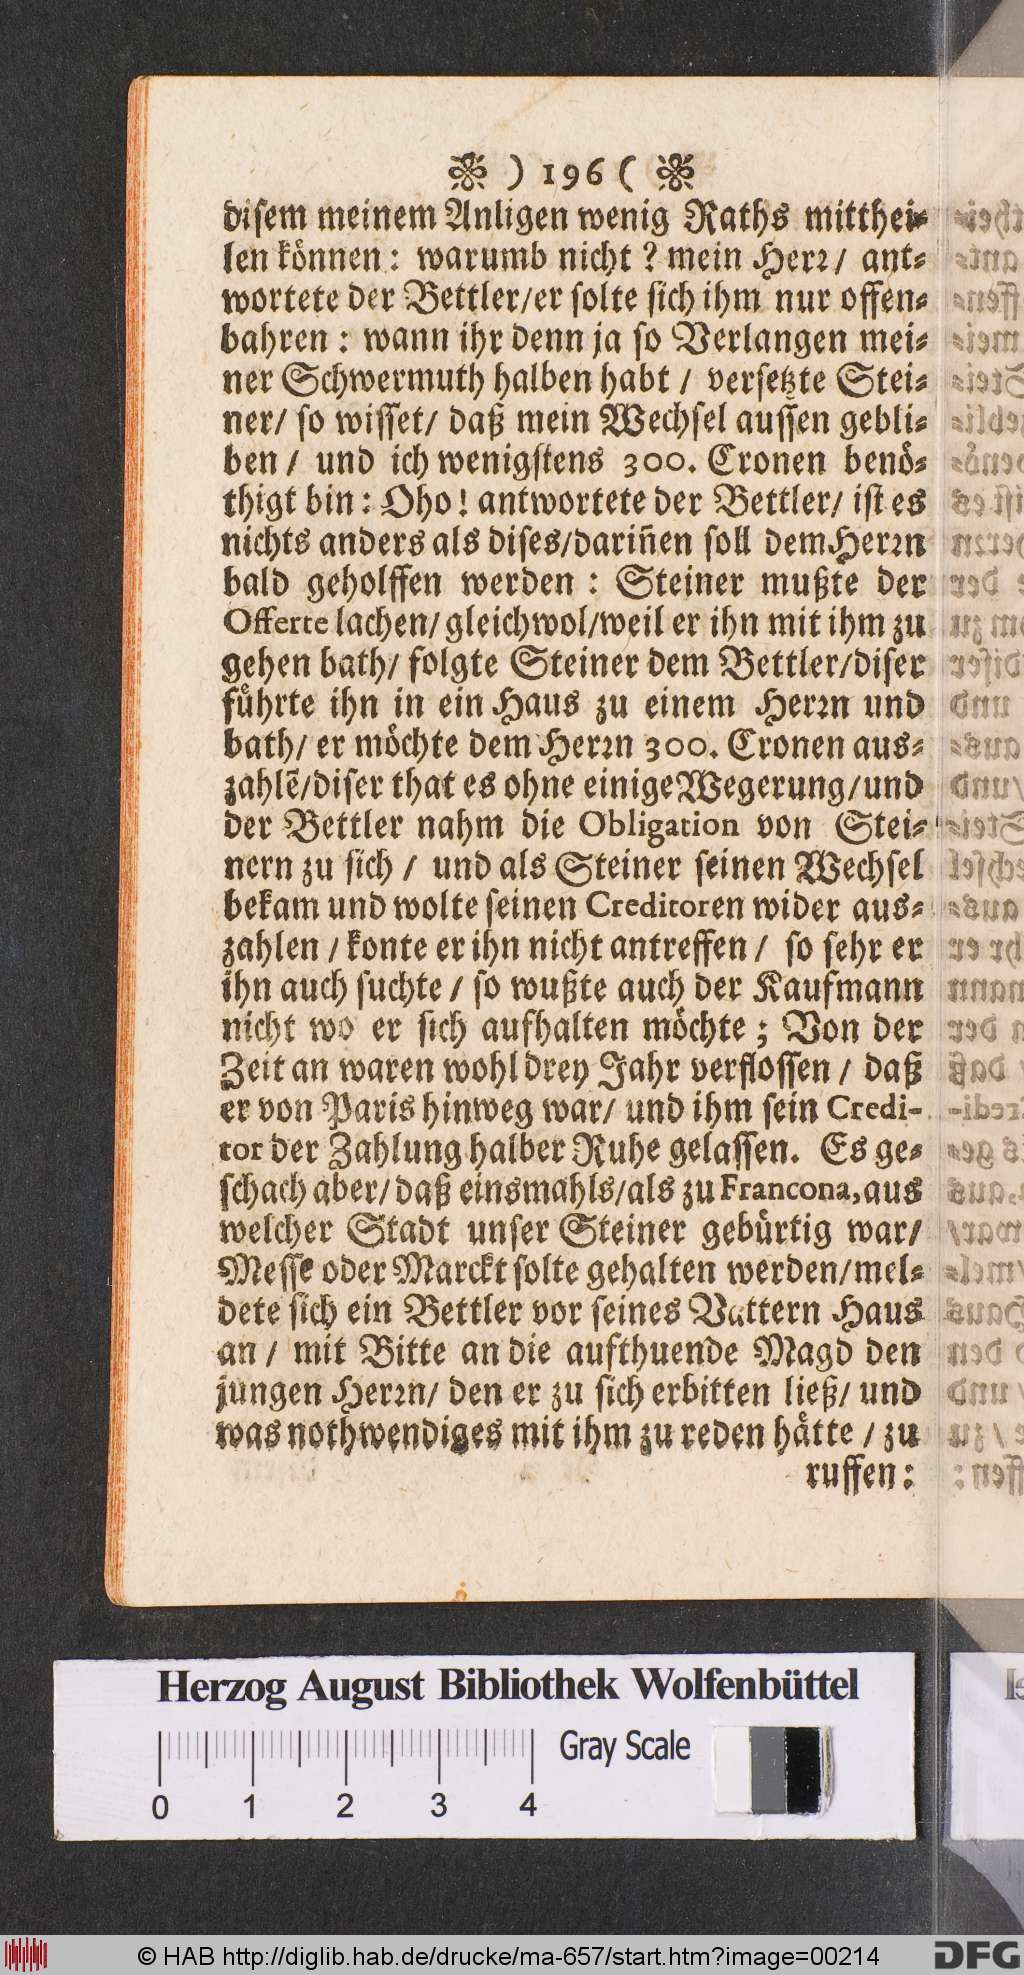 ) 196 (
disem meinem Anligen wenig Raths mitthei⸗
len können: warumb nicht? mein Herꝛ/ ant⸗
wortete der Bettler/er solte sich ihm nur offen⸗
bahren: wann ihr denn ja so Verlangen mei⸗
ner Schwermuth halben habt / versetzte Stei⸗
ner/ so wisset/ daß mein Wechsel aussen gebli⸗
ben / und ich wenigstens 300. Cronen benö⸗
thigt bin: Oho! antwortete der Bettler/ ist es
nichts anders als dises/dariñen soll dem Herꝛn
bald geholffen werden : Steiner mußte der
Offerte lachen/ gleichwol/weil er ihn mit ihm zu
gehen bath/ folgte Steiner dem Bettler/diser
führte ihn in ein Haus zu einem Herꝛn und
bath/ er möchte dem Herꝛn 300. Cronen aus⸗
zahlē/diser that es ohne einige Wegerung/und
der Bettler nahm die Obligation von Stei⸗
nern zu sich / und als Steiner seinen Wechsel
bekam und wolte seinen Creditoren wider aus⸗
zahlen / konte er ihn nicht antreffen / so sehr er
ihn auch suchte / so wußte auch der Kaufmann
nicht wo er sich aufhalten möchte ; Von der
Zeit an waren wohl drey Jahr verflossen / daß
er von Paris hinweg war/ und ihm sein Credi-
tor der Zahlung halber Ruhe gelassen. Es ge⸗
schach aber/ daß einsmahls/als zu Francona, aus
welcher Stadt unser Steiner gebürtig war/
Messe oder Marckt solte gehalten werden/mel⸗
dete sich ein Bettler vor seines Vattern Haus
an / mit Bitte an die aufthuende Magd den
jungen Herꝛn/ den er zu sich erbitten ließ/ und
was nothwendiges mit ihm zu reden hätte / zu
ruffen:
Herzog August Bibliothek Wolfenbüttel
Gray Scale
0 1 2 3 4
© HAB http://diglib.hab.de/drucke/ma-657/start.htm?image=00214
DFG